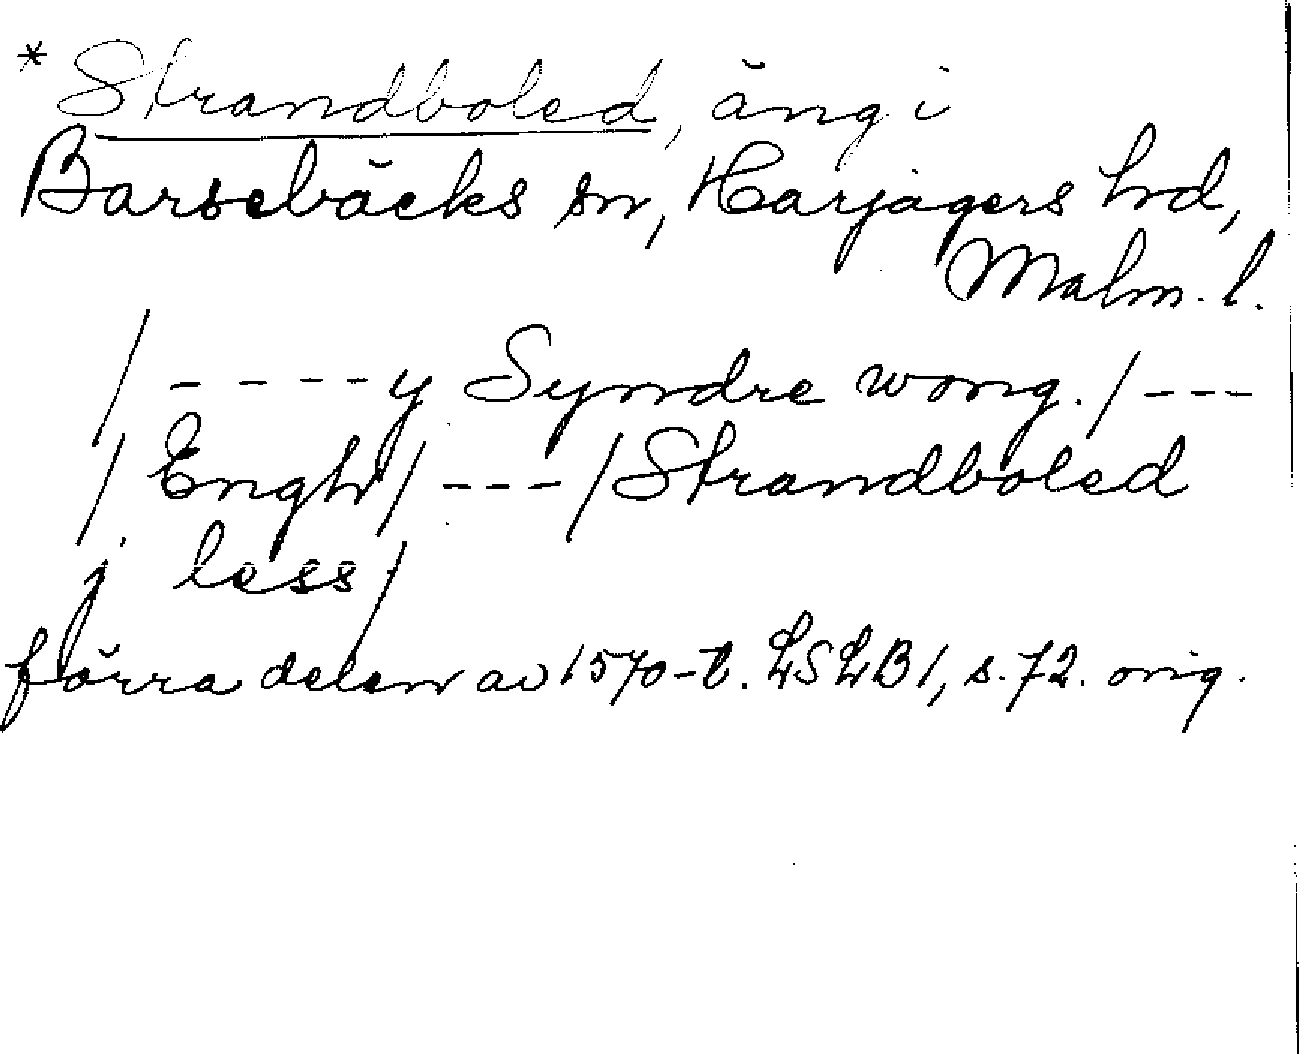 * Strandboled, äng i
Barsebäcks sn, Harjagers hd,
Malm. l.
/ - - - - y Syndre wong. / - - -
/ Engh / - - - / Strandboled
j less /
förra delen av 1570-t. LSLB1, s. 72. orig.